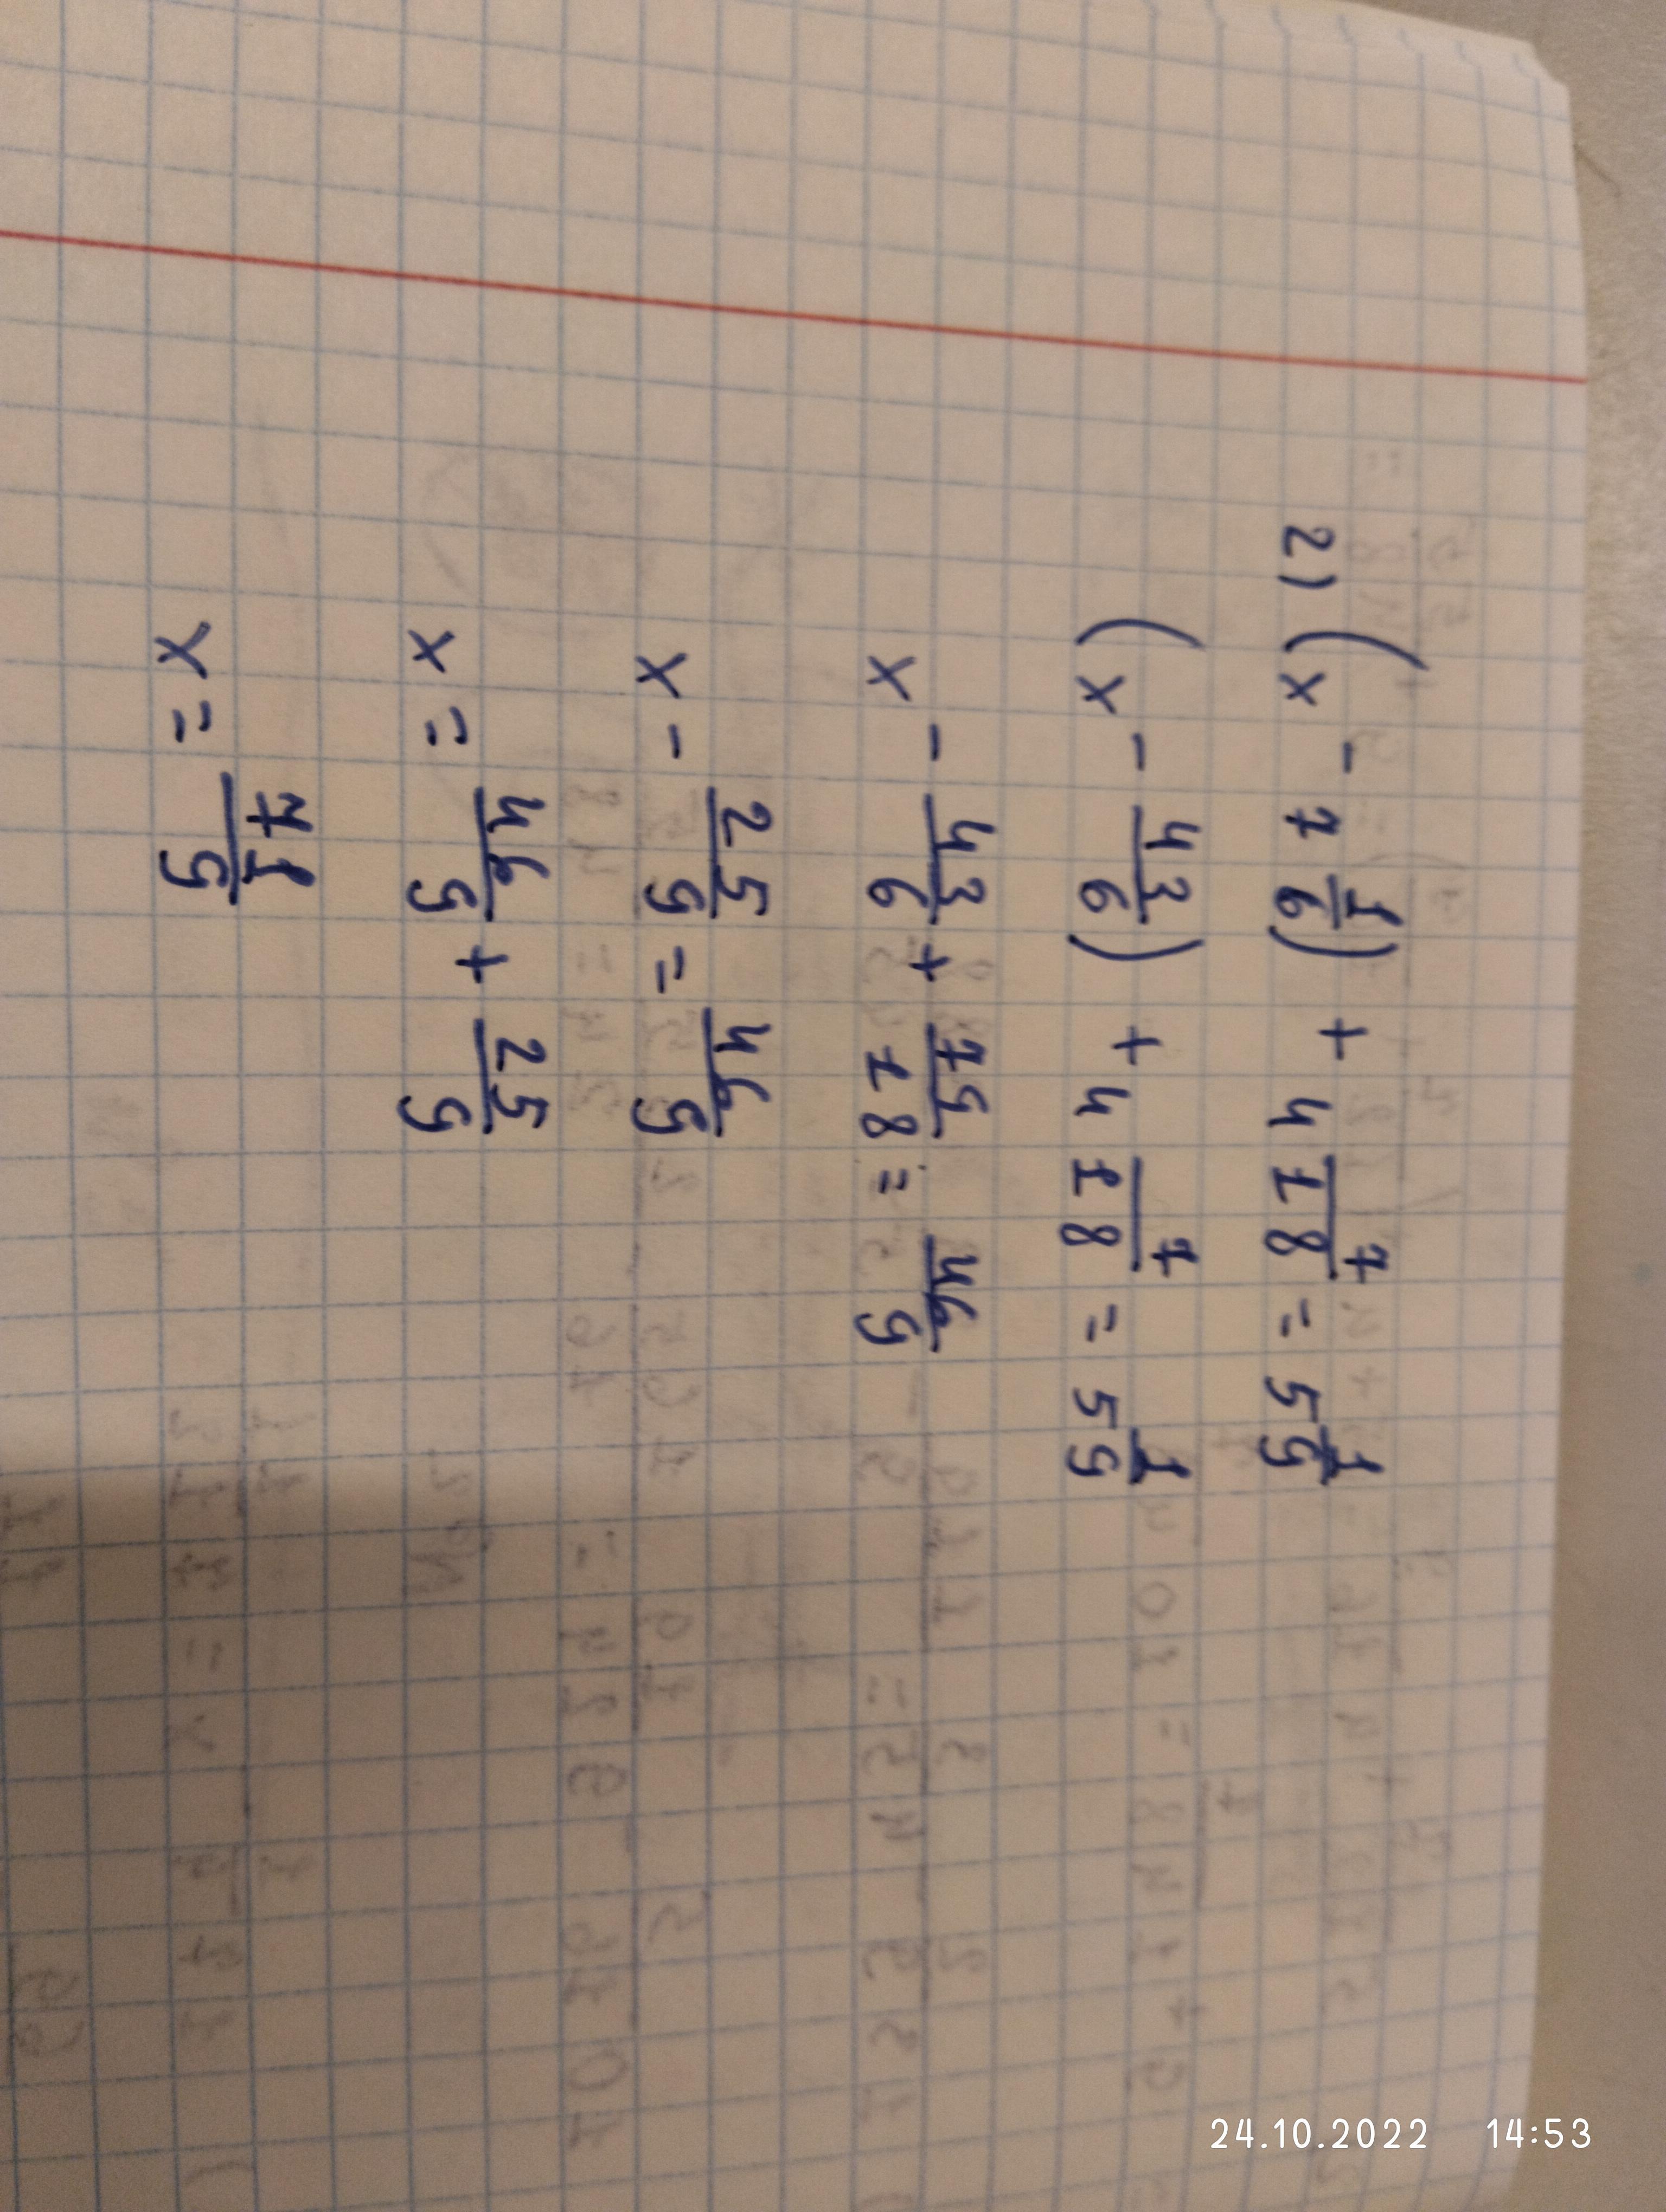 2) (x - 7 1/6) + 4 7/18 = 5 1/9
(x - 43/6) + 4 7/18 = 5 1/9
x - 43/6 + 79/18 = 46/9
x - 25/9 = 46/9
x = 46/9 + 25/9
x = 71/9
24.10.2022 14:53